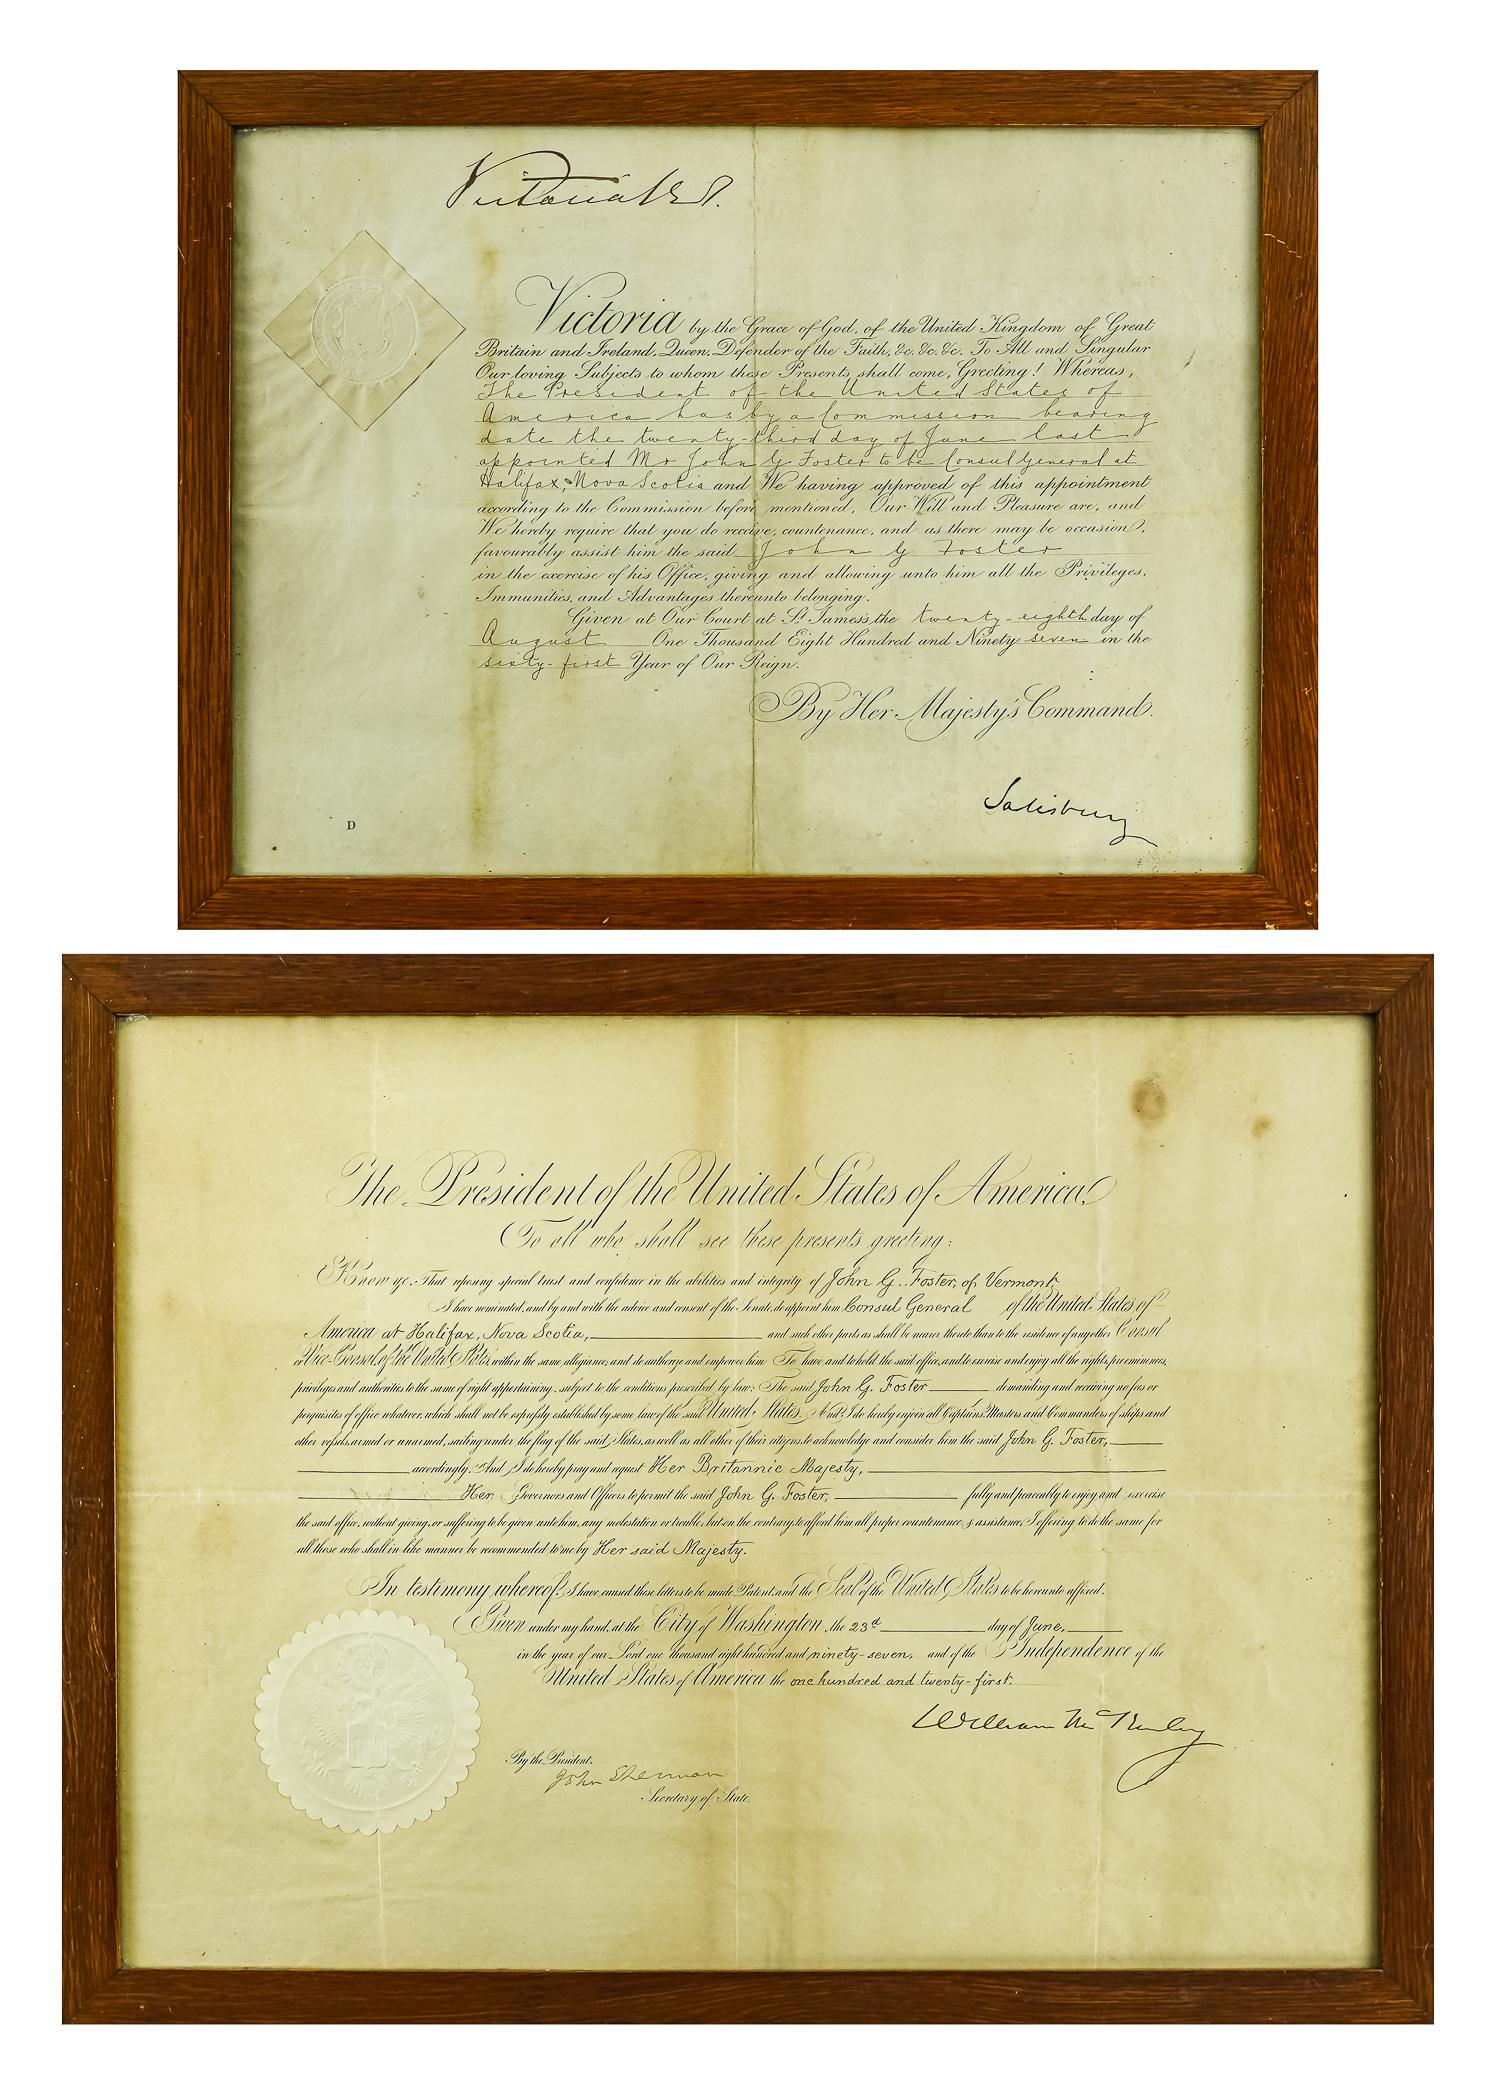 Victoria R I.
Victoria by the Grace of God, of the United Kingdom of Great
Britain and Ireland, Queen, Defender of the Faith, &c. &c. &c. To All and Singular
Our loving Subjects to whom these Presents shall come, Greeting! Whereas,
The President of the United States of
America has by a Commission bearing
date the twenty-third day of June last
appointed Mr John G Foster to be Consul General at
Halifax, Nova Scotia and We having approved of this appointment
according to the Commission before mentioned, Our Will and Pleasure are, and
We hereby require that you do receive, countenance, and as there may be occasion,
favourably assist him the said John G Foster
in the exercise of his Office, giving and allowing unto him all the Privileges,
Immunities, and Advantages thereunto belonging.
Given at Our Court at St. James's, the twenty-eighth day of
August One Thousand Eight Hundred and Ninety seven in the
sixty-first Year of Our Reign.
By Her Majesty's Command.
Salisbury
D
The President of the United States of America,
To all who shall see these presents greeting:
Know ye, That reposing special trust and confidence in the abilities and integrity of John G. Foster, of Vermont,
I have nominated, and by and with the advice and consent of the Senate, do appoint him Consul General of the United States of
America at Halifax, Nova Scotia, and such other parts as shall be nearer thereto than to the residence of any other Consul
or Vice-Consul of the United States, within the same allegiance; and do authorize and empower him To have and to hold the said office, and to exercise and enjoy all the rights, preeminences,
privileges and authorities to the same of right appertaining, subject to the conditions prescribed by law: The said John G. Foster demanding and receiving no fees or
perquisites of office whatever, which shall not be expressly established by some law of the said United States. And I do hereby enjoin all Captains, Masters and Commanders of ships and
other vessels, armed or unarmed, sailing under the flag of the said States, as well as all other of their citizens, to acknowledge and consider him the said John G. Foster,
accordingly. And I do hereby pray and request Her Britannic Majesty,
Her Governors and Officers to permit the said John G. Foster, fully and peaceably to enjoy and exercise
the said office, without giving, or suffering to be given unto him, any molestation or trouble, but on the contrary, to afford him all proper countenance & assistance; I offering to do the same for
all those who shall in like manner be recommended to me by Her said Majesty.
In testimony whereof, I have caused these letters to be made Patent, and the Seal of the United States to be hereunto affixed.
Given under my hand, at the City of Washington, the 23d day of June,
in the year of our Lord one thousand eight hundred and ninety-seven, and of the Independence of the
United States of America the one hundred and twenty-first.
William McKinley
By the President:
John Sherman
Secretary of State.